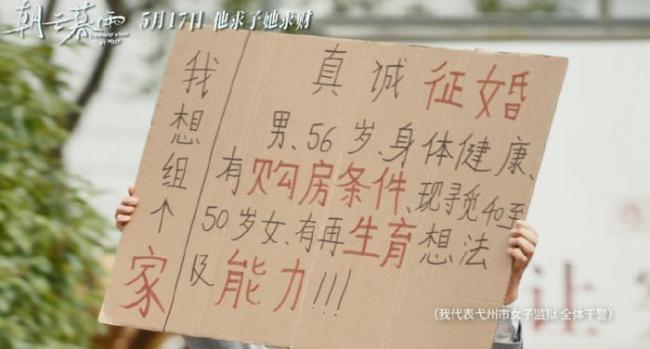 朝云暮雨
5月17日 他求子她求财
我想组个家
真诚征婚
男、56岁、身体健康、
有购房条件、现寻觅40至
50岁女、有再生育想法
及能力!!!
(我代表弋州市女子监狱 全体干警)
让